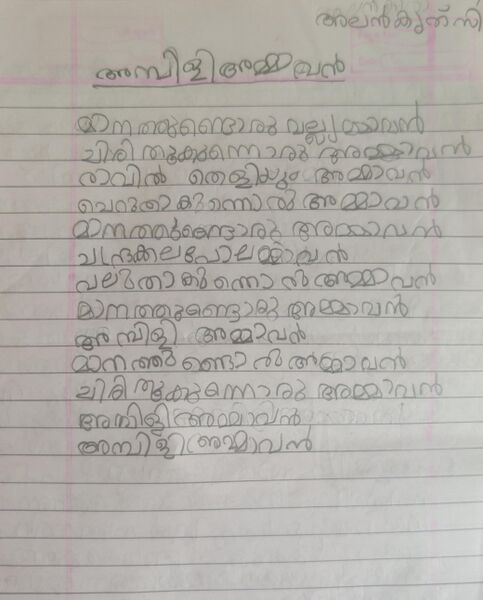 അലൻകുത്സി
അമ്പിളിഅമ്മാവൻ
മാനത്തുണ്ടൊരു വല്ല്യമ്മാവൻ
ചിരിതൂകുന്നൊരു അമ്മാവൻ
രാവിൽ തെളിയും അമ്മാവൻ
ചെറുതാകുന്നൊരു അമ്മാവൻ
മാനത്തുണ്ടൊരു അമ്മാവൻ
ചന്ദ്രക്കലപോലമ്മാവൻ
വലുതാകുന്നൊരു അമ്മാവൻ
മാനത്തുണ്ടൊരു അമ്മാവൻ
അമ്പിളി അമ്മാവൻ
മാനത്തുണ്ടൊരു അമ്മാവൻ
ചിരിതൂകുന്നൊരു അമ്മാവൻ
അമ്പിളിഅമ്മാവൻ
അമ്പിളിഅമ്മാവൻ